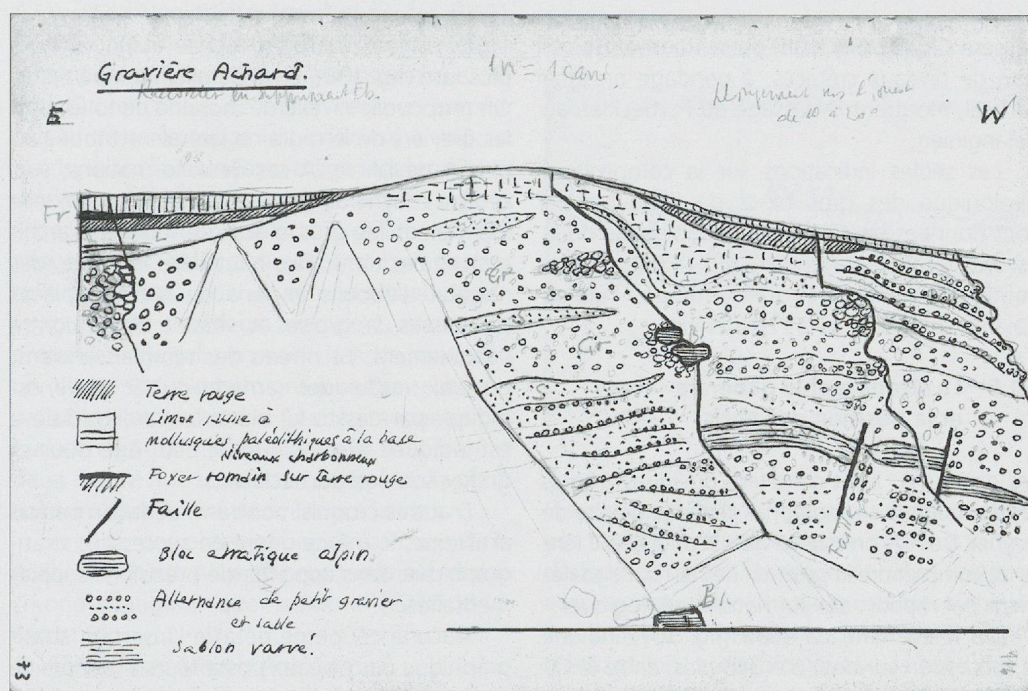 Gravière Achard.
Raccorder en supprimant Eb.
1m = 1cm
de 10 à 20°
E
W
Fr
L
Gr
S
Gr
S
Bl
Gr
Terre rouge
Limon jaune à
mollusques, paléolithiques à la base
Niveaux charbonneux
Foyer romain sur Terre rouge
Faille
Bloc erratique alpin
Alternance de petit gravier
et sable
Sablon varvé.
Faille
Bl